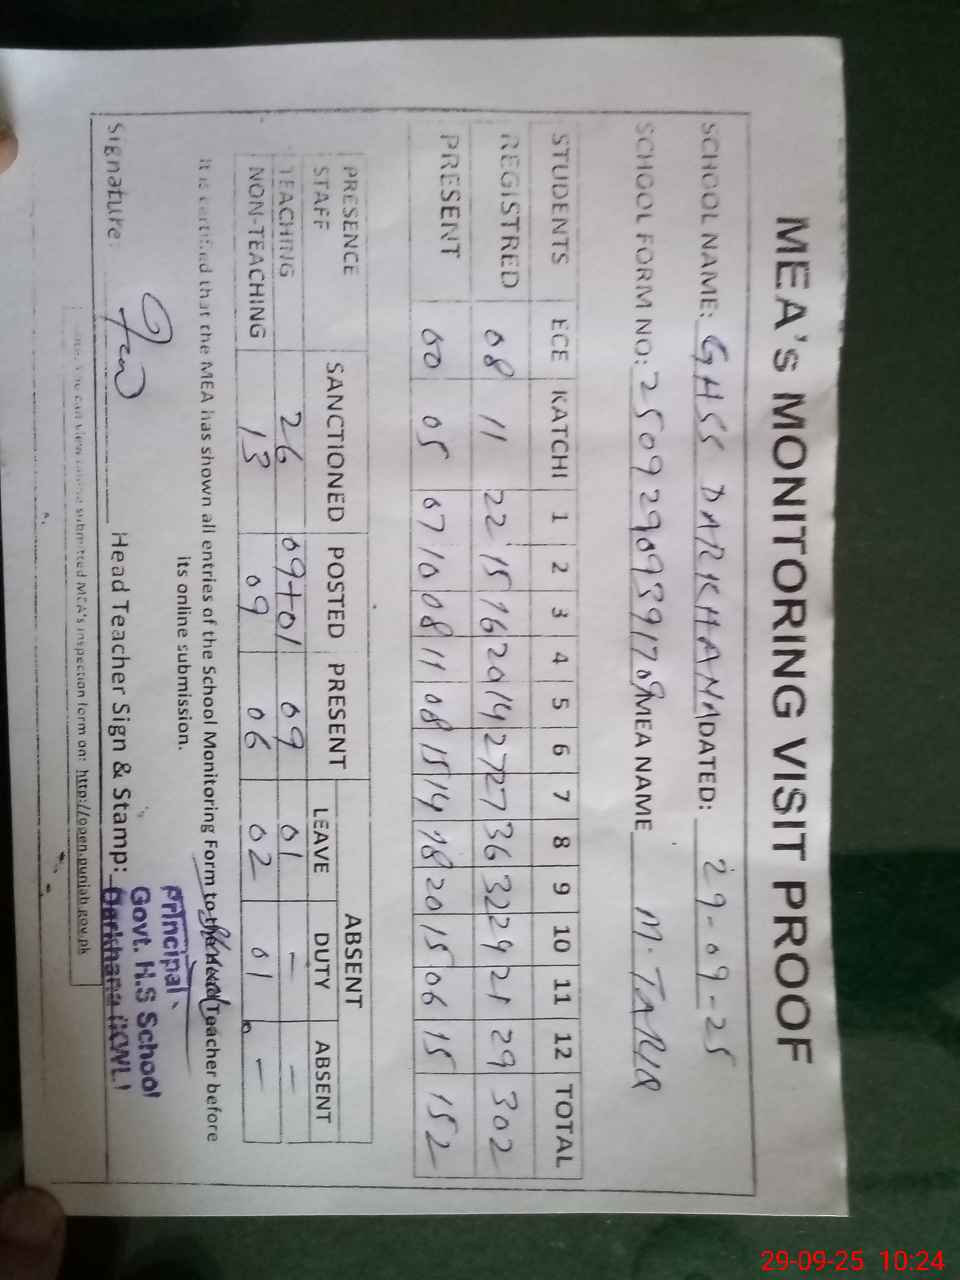 MEA's MONITORING VISIT PROOF
SCHOOL NAME: GHSS DARKHANA DATED: 29-09-25
SCHOOL FORM NO: 25092909391709 MEA NAME M. TARIQ
STUDENTS ECE KATCHI 1 2 3 4 5 6 7 8 9 10 11 12 TOTAL
REGISTRED 08 11 22 15 16 20 14 27 27 36 32 24 21 29 302
PRESENT 00 05 07 10 08 11 08 15 14 18 20 15 06 15 152
PRESENCE SANCTIONED POSTED PRESENT ABSENT
STAFF LEAVE DUTY ABSENT
TEACHING 26 09+01 09 01 - -
NON-TEACHING 13 09 06 02 01 -
It is certified that the MEA has shown all entries of the School Monitoring Form to the Head Teacher before
its online submission.
Signature: Head Teacher Sign & Stamp:
Principal
Govt. H.S School
Darkhana (KWL)
You can view online submitted MEA's inspection form on: http://open.punjab.gov.pk
29-09-25 10:24